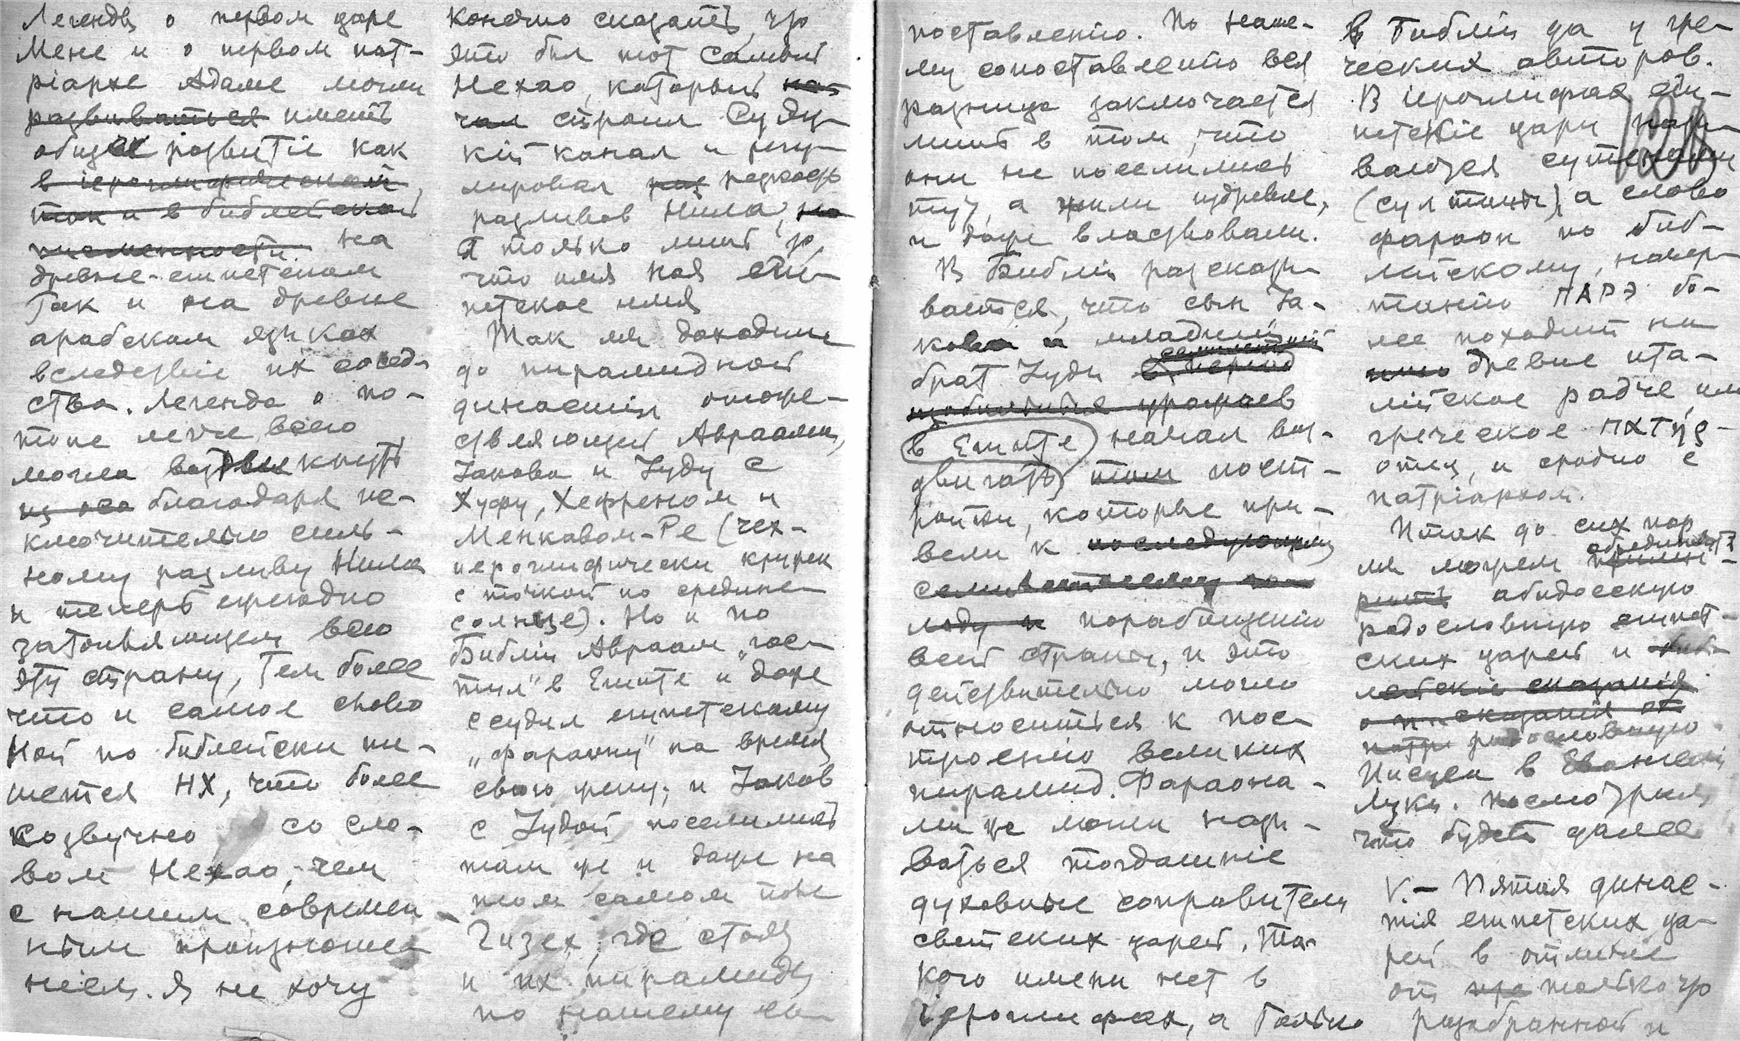 Легенды о первом царе
Мене и о первом пат-
ріархе Адаме могли
развиваться иметь
общее развитіе как
в іероглифической,
так и в библейской
письменности. на
древне-египетском
так и на древне
арабском языках
вследствіе их сосед-
ства. Легенда о по-
топе легче всего
могла возникнуть
благодаря ис-
ключительно силь-
ному разливу Нила
и теперь ежегодно
затопляющему всю
эту страну, тем более
что и самое слово
Ной по библейски пи-
шется НХ, что более
созвучно со сло-
вом Нехао, чем
с нашим современ-
ным произноше-
ніем. Я не хочу
конечно сказать, что
это был тот самый
Нехао, который
строил Суэц-
кій канал и регу-
лировал периоды
разливов Нила, но
я только лишь то,
что имя Ной еги-
петское имя
Так мы доходим
до пирамидной
династіи отоже-
ствляющей Авраама,
Іакова и Іуду с
Хуфу, Хефреном и
Менкавом-Ре (чех-
иероглифически кружек
с точкой по средине
солнце). Но и по
Библіи Авраам „гос-
тил" в Египте и даже
ссудил египетскому
„фараону" на время
свою жену, и Іаков
с Іудой поселились
там же и даже на
том самом поле
Гизех, где стоят
и их пирамиды
по нашему со-
поставленію. По наше-
му сопоставленію вся
разница заключается
лишь в том, что
они не поселились
тут, а жили издревле,
и даже властвовали.
В Библіи разсказы-
вается, что сын Іа-
кова и младшій
брат Іуды
урожаев
в Египте начал воз-
двигать там пост-
ройки, которые при-
вели к последующему
порабощенію
всей страны, и это
действительно могло
относиться к пос-
троенію великих
пирамид. Фараона-
ми же могли назы-
ваться тогдашніе
духовные соправители
светских царей. Та-
кого имени нет в
іероглифах, а только
в Библіи да у гре-
ческих авторов.
В іероглифах еги-
петскіе цари назы-
ваются сутенами
(султаны), а слово
фараон по биб-
лейскому начер-
танію ПАРЭ бо-
лее походит на
древне ита-
лійское падре или
греческое патэр-
отец, и сродно с
патріархом.
Итак до сих пор
мы можем
абидосскую
родословную египет-
ских царей и
сказанія
родословную
Іисуса в Евангеліи
Луки. Посмотрим,
что будет далее
V.— Пятая динас-
тія египетских ца-
рей в отличіе
от только что
разобранной и